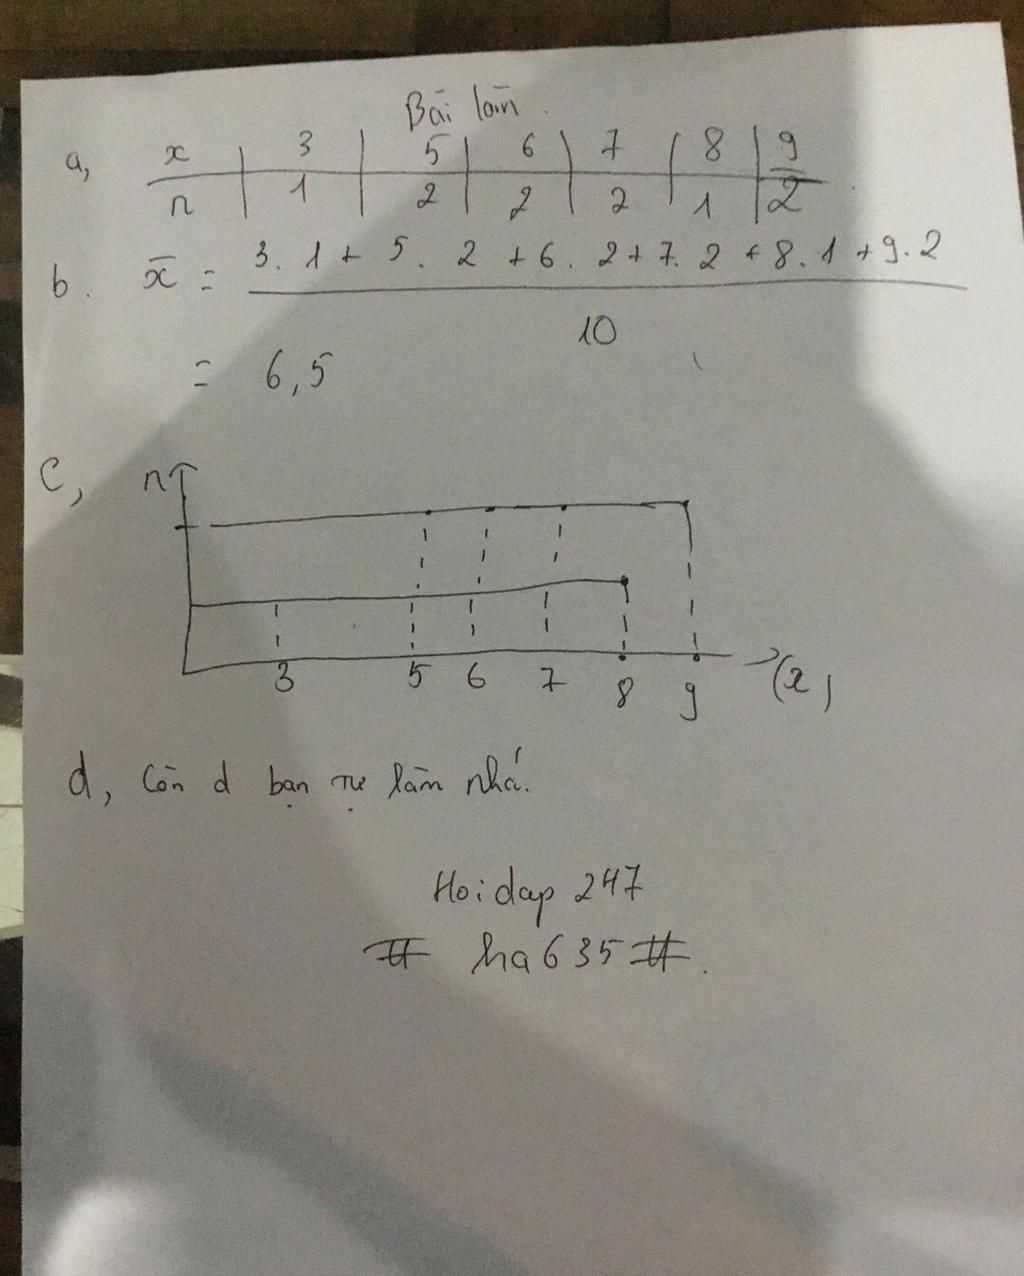 Bài làm.
a, x 3 5 6 7 8 9
n 1 2 2 2 1 2
b. x̄ = 3.1+5.2+6.2+7.2+8.1+9.2
10
= 6,5
c, n
3 5 6 7 8 9 (x)
d, Còn d bạn tự làm nhá.
Hoidap 247
# ha635#.